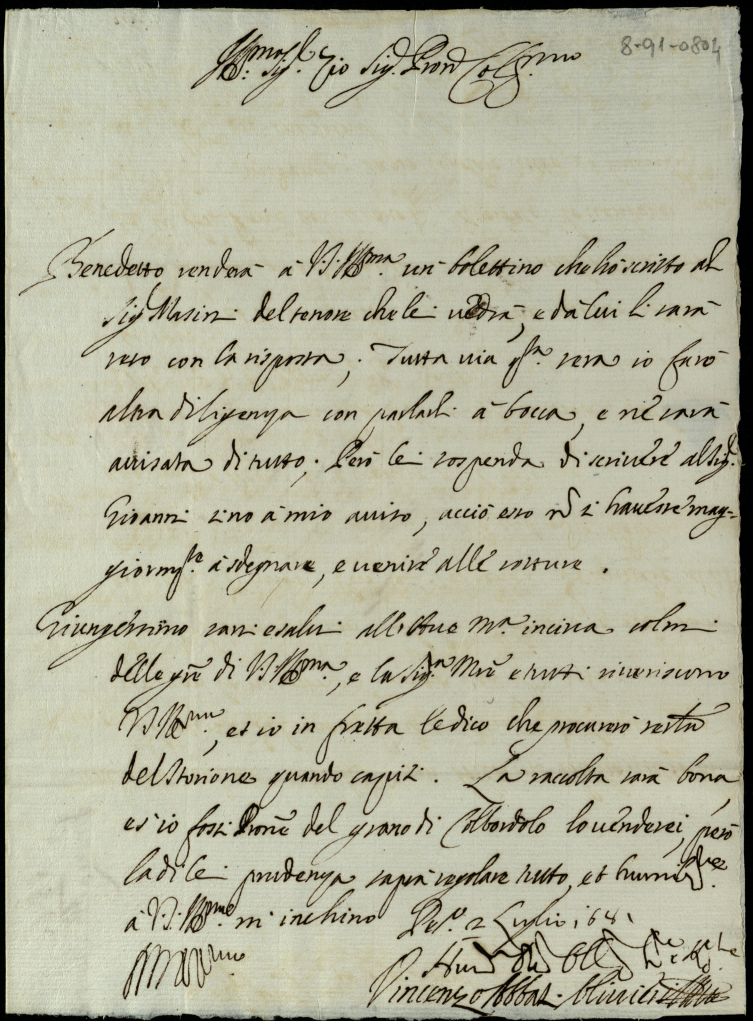 8-91-0804
Ill.mo Sig.r Zio Sig. Pron Col.mo
Benedetto renderà à V.S. Ill.ma un bolettino che hò scritto al
Sig.r Masini del tenore che lei vedrà, e dà lui li sarà
reso con la risposta; Tutta via q.sta sera io farò
altra diligenza con parlarli à bocca, e ne sarà
avvisata di tutto; Però lei sospenda di scrivere al Sig.r
Giovanni sino à mio aviso, acciò esso nō si havesse mag-
giorm.te à sdegnare, e venire alle rotture.
Giungessimo sani e salvi all' hore
delle gře di V.S. Ill.ma, e la Sig.ra Mře e tutti riveriscono
V.S. Ill.ma, et io in fretta le dico che procurerò
del storione quando capiti. La raccolta sarà bona
e s'io fossi Prone del grano di Colbordolo lo venderei, però
la di lei prudenza saprà regolare tutto, et humil.
à V.S. Ill.ma m'inchino Pes.o 2 Luglio 1681
Vincenzo Abbati Olivieri